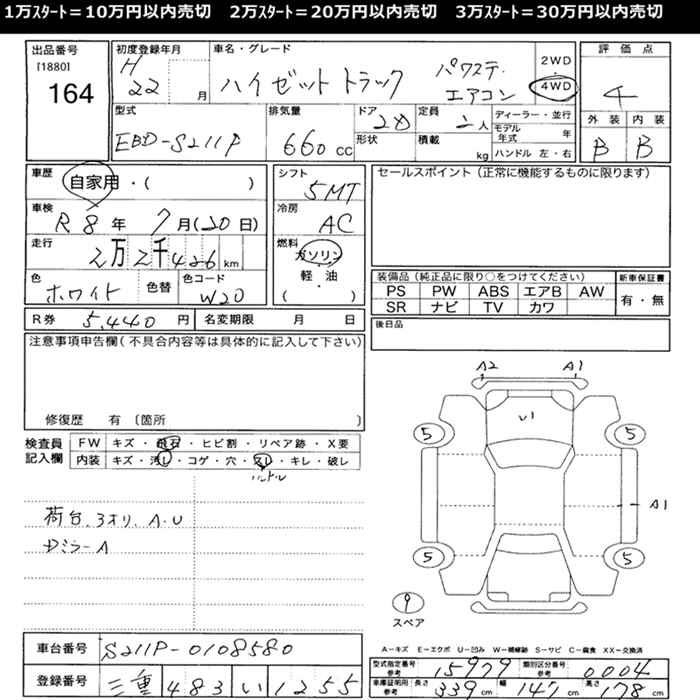 1万ｽﾀｰﾄ＝10万円以内売切　2万ｽﾀｰﾄ＝20万円以内売切　3万ｽﾀｰﾄ＝30万円以内売切
出品番号 [1880] 164
初度登録年月 H 22 月
車名・グレード ハイゼットトラック パワステ エアコン
2WD 4WD
評価点 4
外装 B 内装 B
型式 EBD-S211P
排気量 660 cc
ドア 2 形状
定員 二人 積載 kg
ディーラー・並行
モデル年式 年
ハンドル 左・右
車歴 自家用・( )
車検 R 8 年 7 月 (20日)
走行 2万2千426 km
色 ホワイト 色替 色コード W20
シフト 5MT
冷房 AC
燃料 ガソリン 軽・油 ( )
セールスポイント (正常に機能するものに限ります)
装備品 (純品正に限り○をつけてください) 新車保証書
PS PW ABS エアB AW 有・無
SR ナビ TV カワ
R券 5,440 円 名変期限 月 日
後日品
注意事項申告欄 (不具合内容等は具体的に記入して下さい)
修復歴 有 〔箇所
検査員記入欄
FW キズ・飛石・ヒビ割・リペア跡・X要
内装 キズ・汚レ・コゲ・穴・スレ・キレ・破レ
ハンドル
荷台、3オリ、A・U
ミラーA
A2 A1
U1
5 5
A1
5 5
9
スペア
A－キズ E－エクボ U－凹み W－補修跡 S－サビ C－腐食 XX－交換済
車台番号 S211P-0108580
登録番号 三重 483 い 1255
型式指定番号 参考 15979 類別区分番号 参考 0004
車庫証明用 参考 長さ 339 cm 幅 147 cm 高さ 178 cm